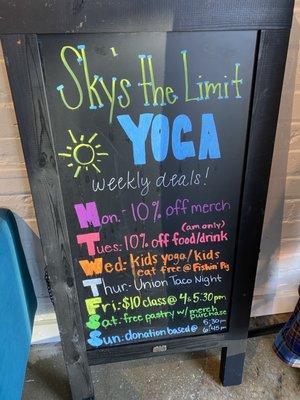 Sky's the Limit
YOGA
weekly deals!
Mon: 10% off merch
(am only)
Tues: 10% off food/drink
Wed: kids yoga/kids
eat free @ Fishin' Pig
Thur: Union Taco Night
Fri: $10 class @ 4 & 5:30 pm
Sat: free pastry w/ merch
purchase
Sun: donation based @ 5:30 &
6:45 pm